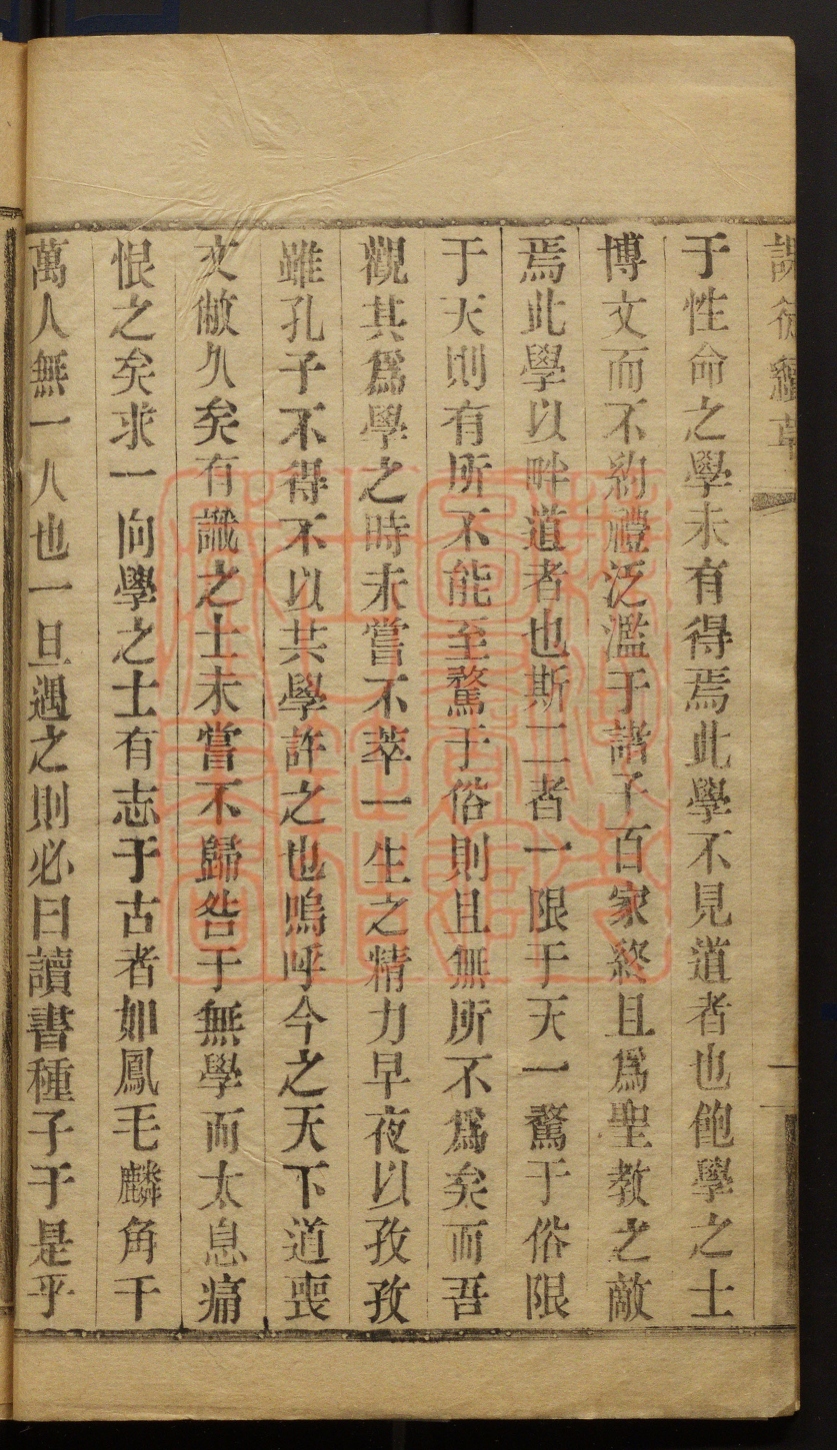 于性命之學未有得焉此學不見道者也飽學之士
博文而不約禮泛濫于諸子百家終且爲聖教之敵
焉此學以畔道者也斯二者一限于天一騖于俗限
于天則有所不能至騖于俗則且無所不爲矣而吾
觀其爲學之時未嘗不萃一生之精力早夜以孜孜
雖孔子不得不以共學許之也嗚呼今之天下道喪
文敝久矣有識之士未嘗不歸咎于無學而太息痛
恨之矣求一向學之士有志于古者如鳳毛麟角千
萬人無一人也一旦遇之則必曰讀書種子于是乎